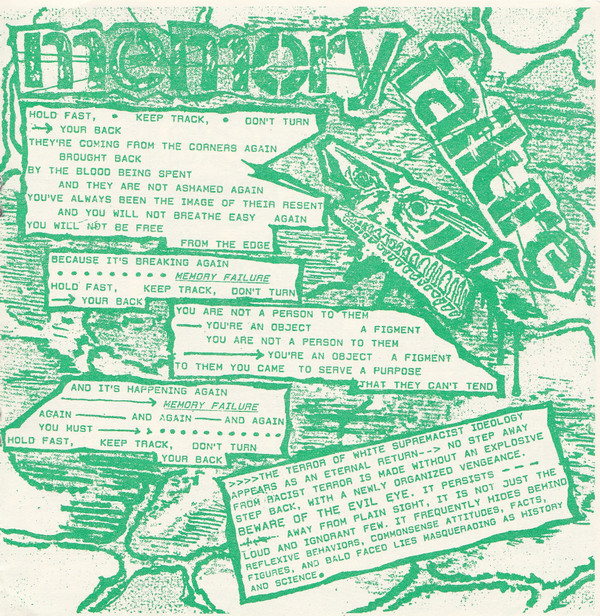 memory
failure
HOLD FAST, • KEEP TRACK, • DON'T TURN
→ YOUR BACK
THEY'RE COMING FROM THE CORNERS AGAIN
BROUGHT BACK
BY THE BLOOD BEING SPENT
AND THEY ARE NOT ASHAMED AGAIN
YOU'VE ALWAYS BEEN THE IMAGE OF THEIR RESENT
AND YOU WILL NOT BREATHE EASY AGAIN
YOU WILL NOT BE FREE
FROM THE EDGE
BECAUSE IT'S BREAKING AGAIN
• • • • • • • • • MEMORY FAILURE
HOLD FAST, KEEP TRACK, DON'T TURN
→ YOUR BACK
YOU ARE NOT A PERSON TO THEM
— YOU'RE AN OBJECT A FIGMENT
YOU ARE NOT A PERSON TO THEM
→ YOU'RE AN OBJECT A FIGMENT
TO THEM YOU CAME TO SERVE A PURPOSE
THAT THEY CAN'T TEND
AND IT'S HAPPENING AGAIN
→ MEMORY FAILURE
AGAIN — AND AGAIN — AND AGAIN
YOU MUST → • • • • • • • • •
HOLD FAST, KEEP TRACK, DON'T TURN
YOUR BACK
>>>>>THE TERROR OF WHITE SUPREMACIST IDEOLOGY
APPEARS AS AN ETERNAL RETURN--> NO STEP AWAY
FROM RACIST TERROR IS MADE WITHOUT AN EXPLOSIVE
STEP BACK, WITH A NEWLY ORGANIZED VENGEANCE.
BEWARE OF THE EVIL EYE. IT PERSISTS — — →
AWAY FROM PLAIN SIGHT, IT IS NOT JUST THE
LOUD AND IGNORANT FEW. IT FREQUENTLY HIDES BEHIND
REFLEXIVE BEHAVIORS, COMMONSENSE ATTITUDES, FACTS,
FIGURES, AND BALD FACED LIES MASQUERADING AS HISTORY
AND SCIENCE.